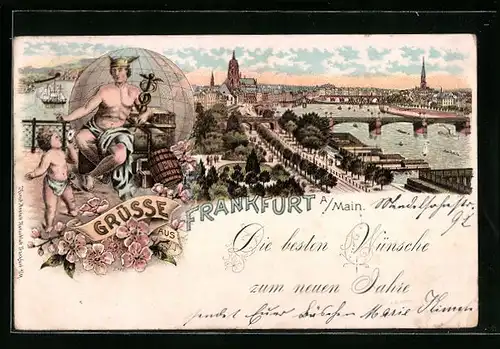 GRÜSSE
AUS
FRANKFURT A/Main.
92
Die besten Wünsche
zum neuen Jahre
sendet Euer Marie